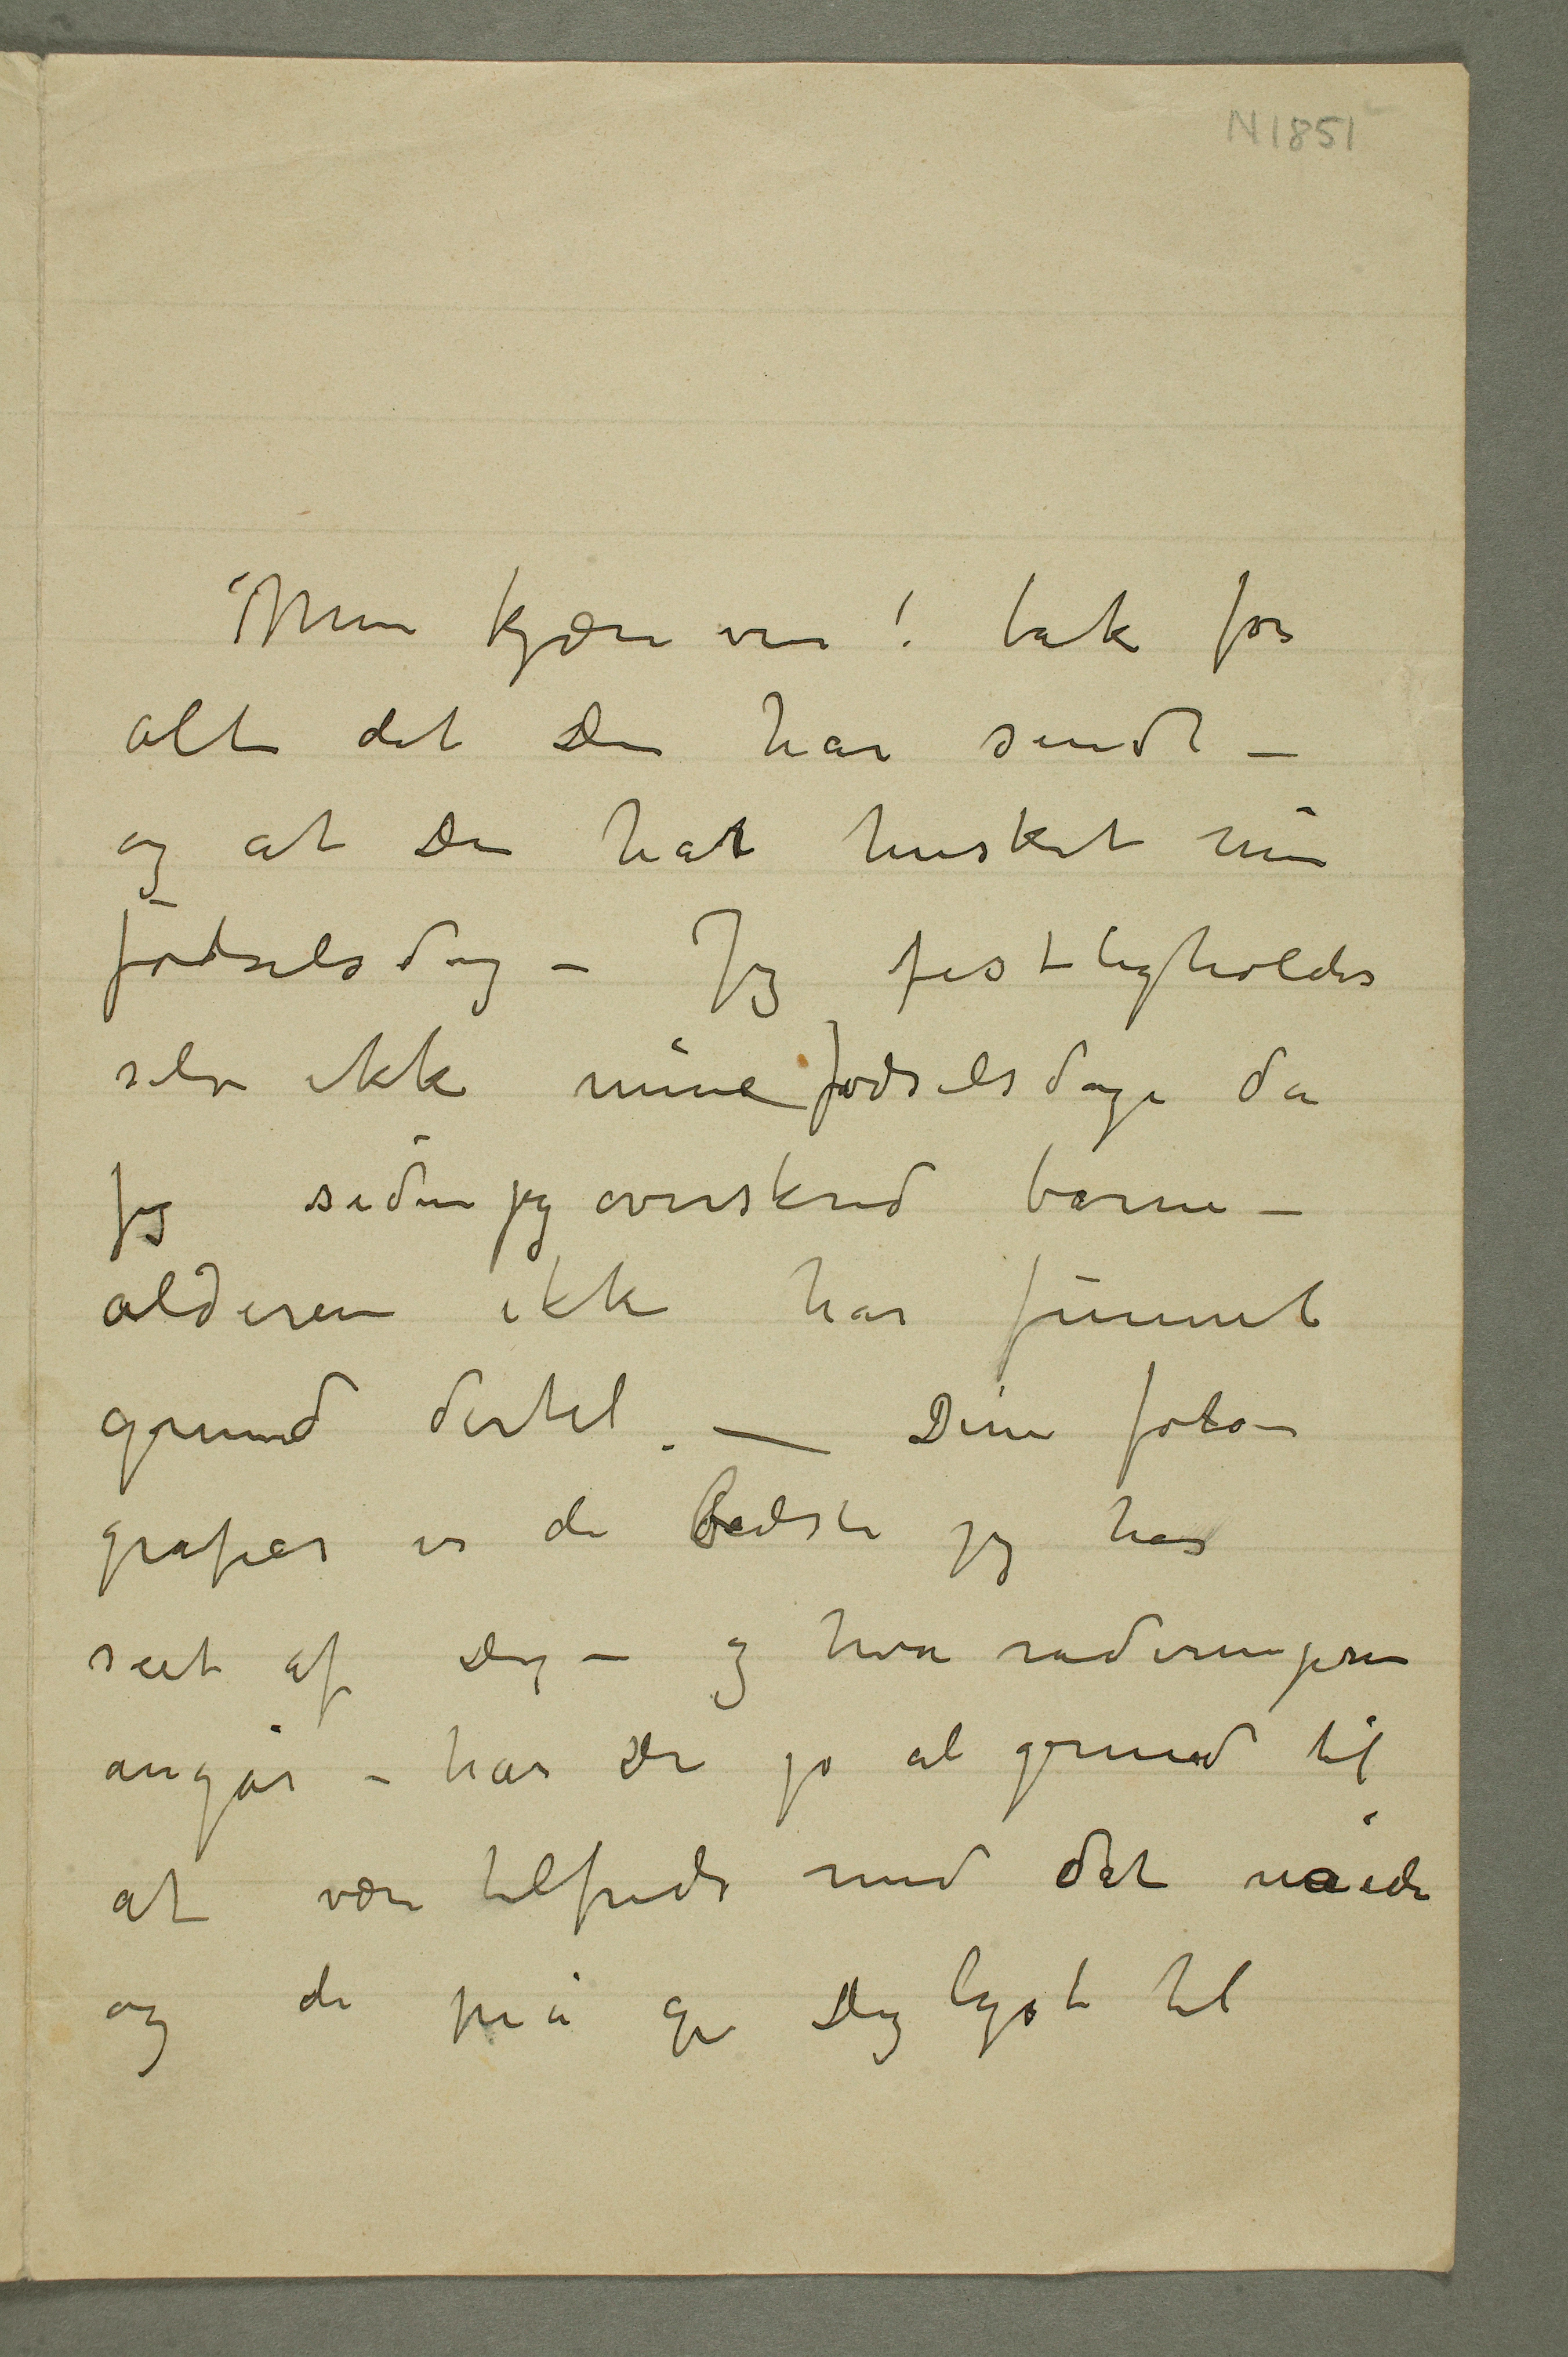 N 1851
Min kjære ven! tak for
alt det Du har sendt –
og at Du har husket min
fødselsdag – Jeg festligholder
selv ikke mine fødselsdage da
jeg siden jeg overskred barne-
alderen ikke har funnet
grund dertil. — Dine foto-
grafier er de bedste jeg har
seet af Dig – og hva raderingern
angår – har Du jo al grund til
at være tilfreds med det nåede
og de må gi Dig lyst til